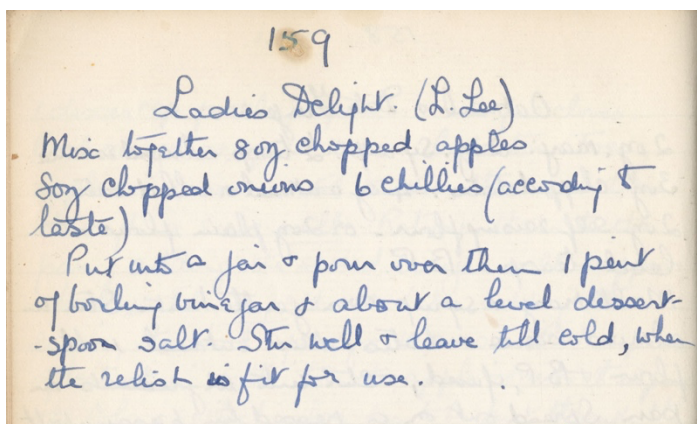 159
Ladies Delight. (L. Lee)
Mix together 8oz chopped apples
8oz chopped onions 6 chillies (according to
taste)
Put into a jar & pour over them 1 pint
of boiling vinegar & about a level dessert-
-spoon salt. Stir well & leave till cold, when
the relish is fit for use.